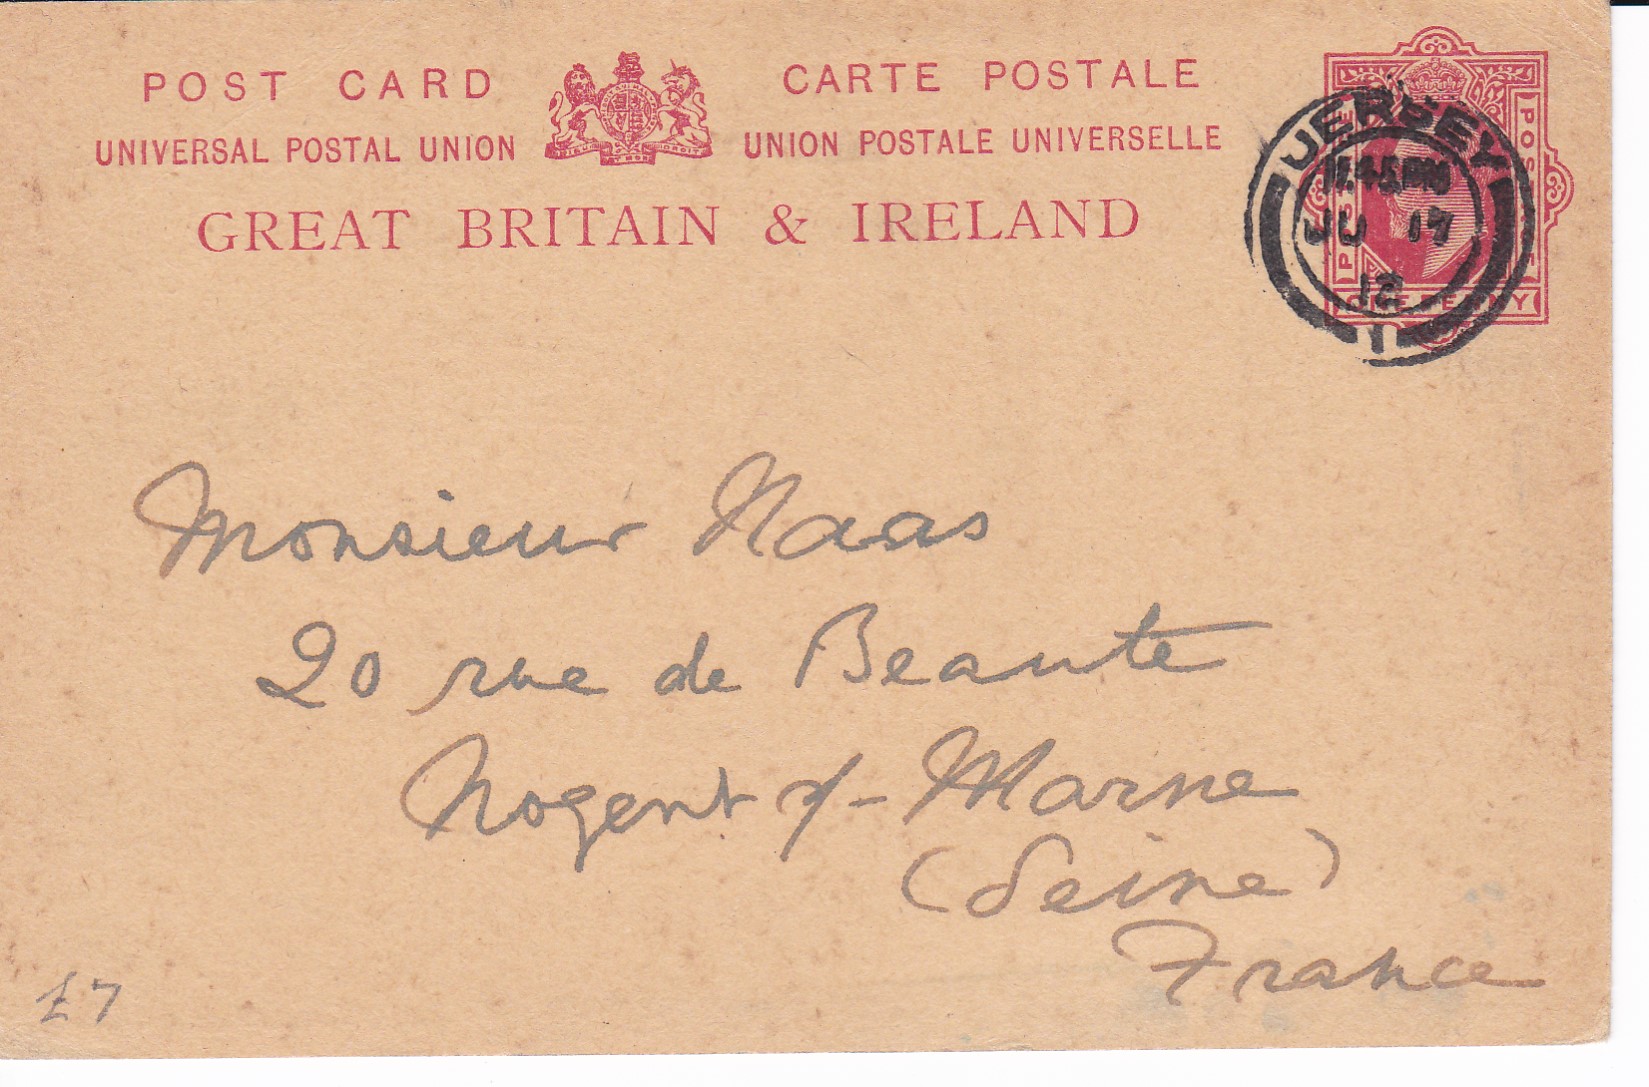 POST CARD CARTE POSTALE
UNIVERSAL POSTAL UNION UNION POSTALE UNIVERSELLE
GREAT BRITAIN & IRELAND
JERSEY
JU 17
12
1
ONE PENNY
Monsieur Haas
20 rue de Beaute
Nogent s/- Marne
(Seine)
France
£7